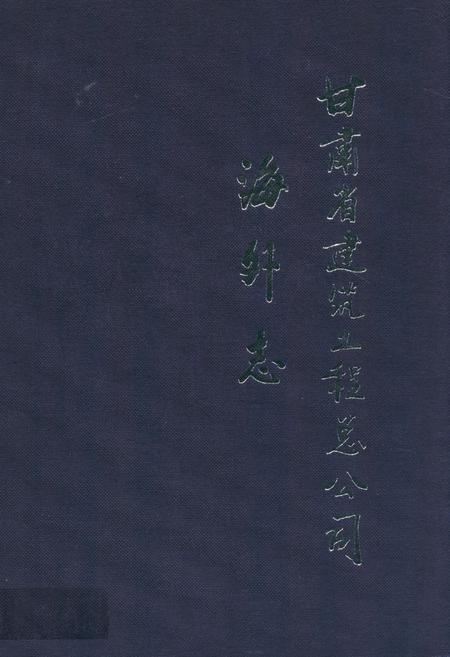 甘肃省建筑工程总公司
海外志